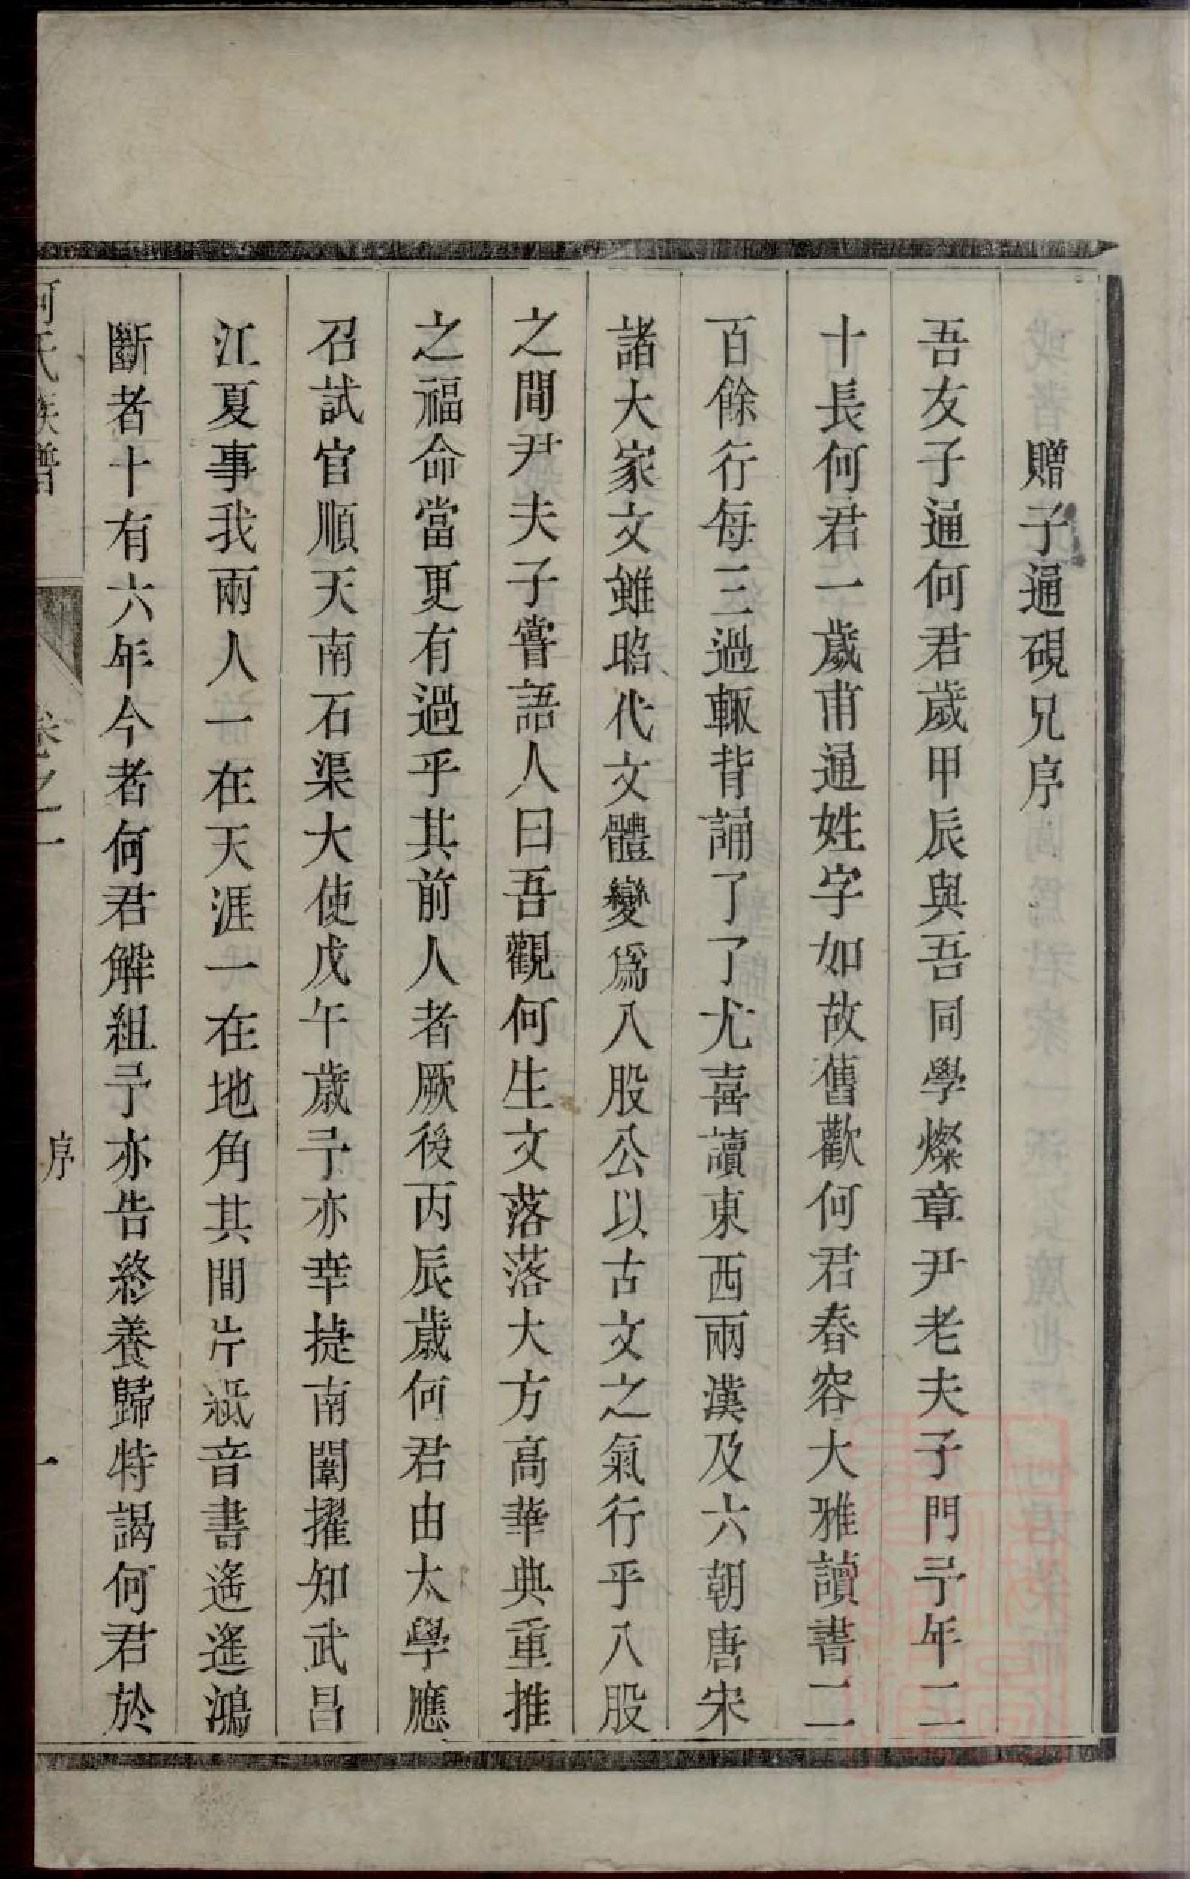 贈子通硯兄序
吾友子通何君歲甲辰與吾同學燦章尹老夫子門予年二
十長何君一歲甫通姓字如故舊歡何君春容大雅讀書二
百餘行每三過輙背誦了了尤喜讀東西兩漢及六朝唐宋
諸大家文雖昭代文體變爲八股公以古文之氣行乎八股
之間尹夫子嘗語人曰吾觀何生文落落大方高華典重推
之福命當更有過乎其前人者厥後丙辰歲何君由太學應
召試官順天南石渠大使戊午歲予亦幸捷南闈擢知武昌
江夏事我兩人一在天涯一在地角其間片紙音書遙遙鴻
斷者十有六年今者何君解組予亦告終養歸特謁何君於
何氏族譜 卷之一 序 一